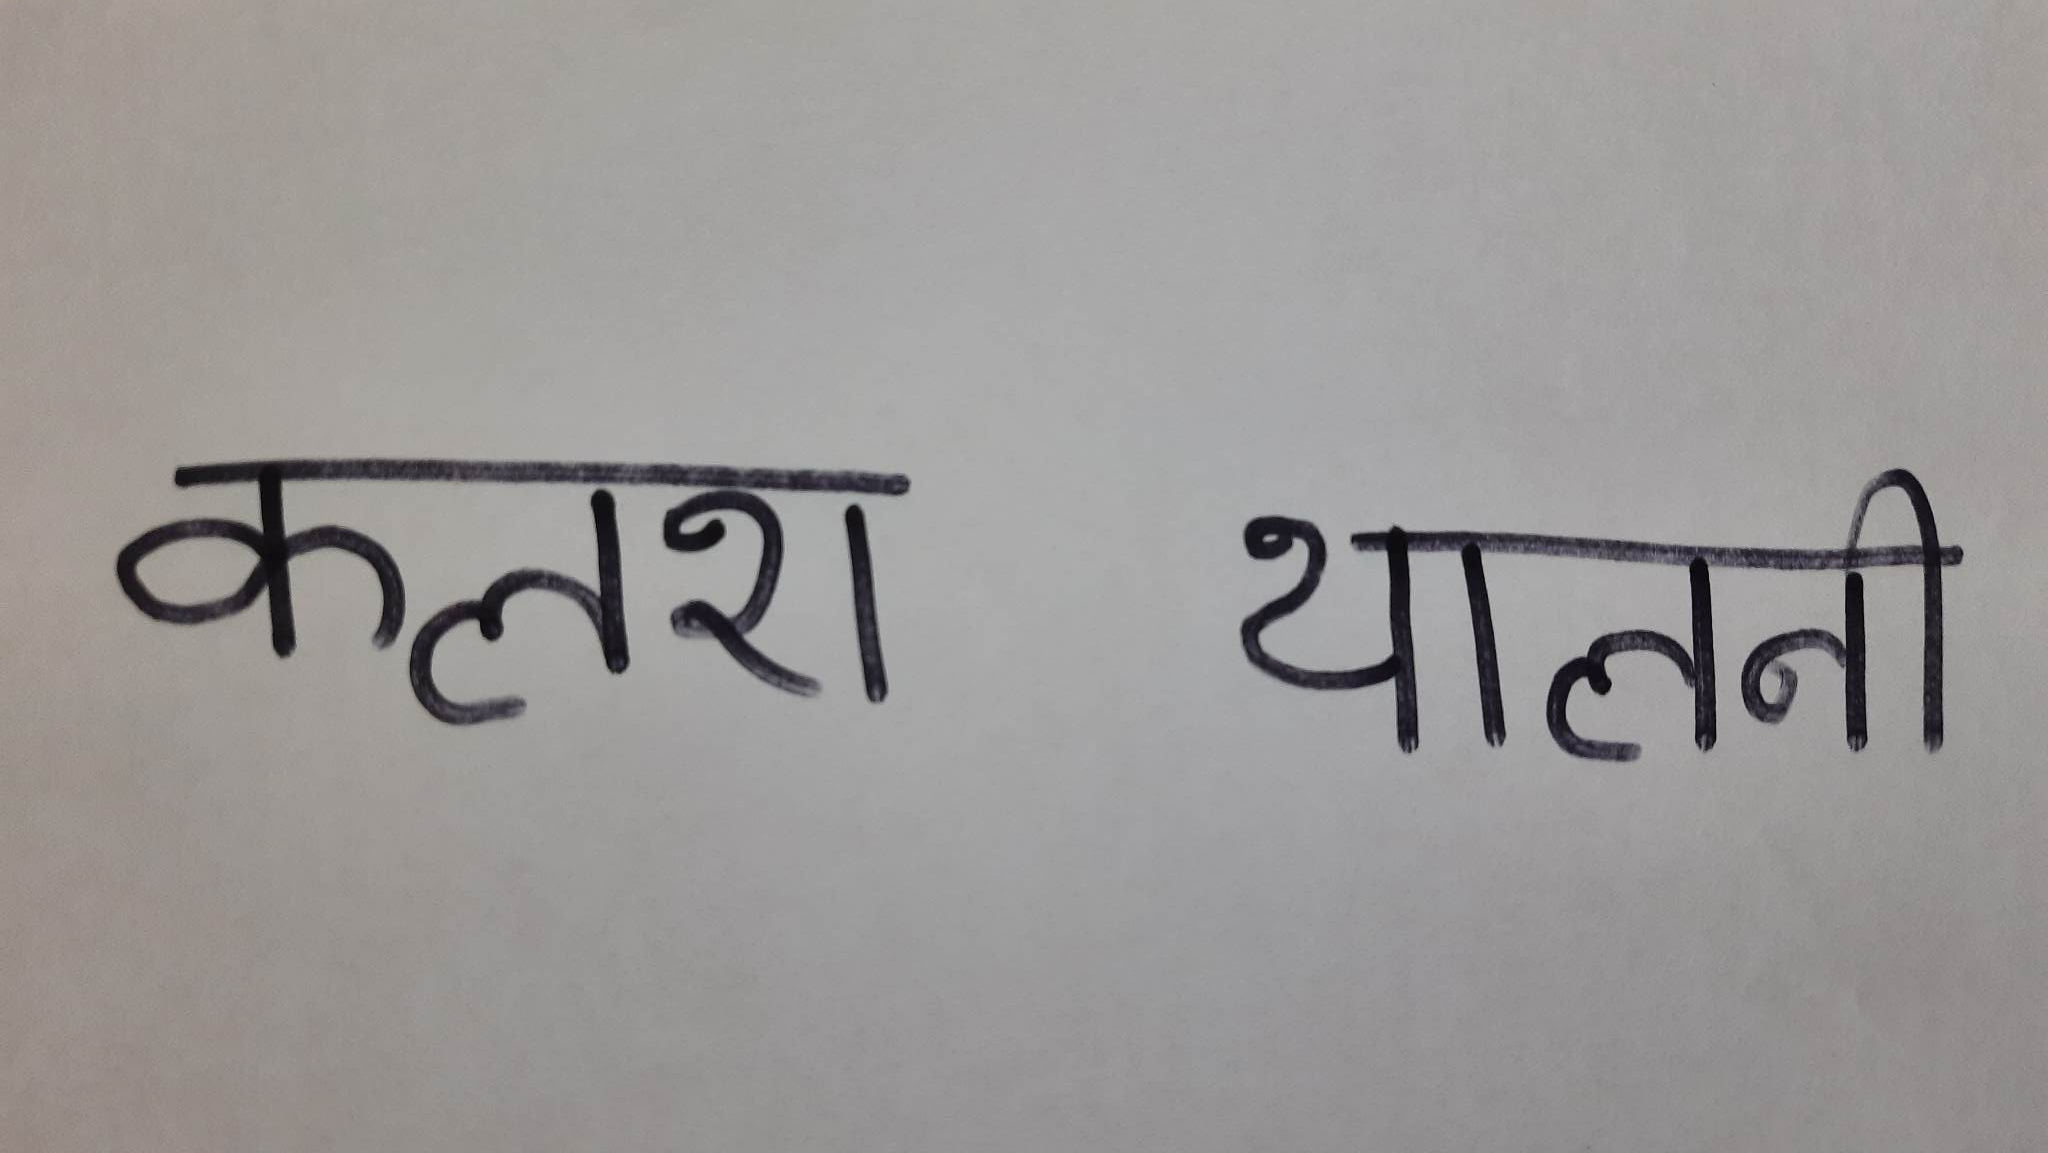 कलश थालनी